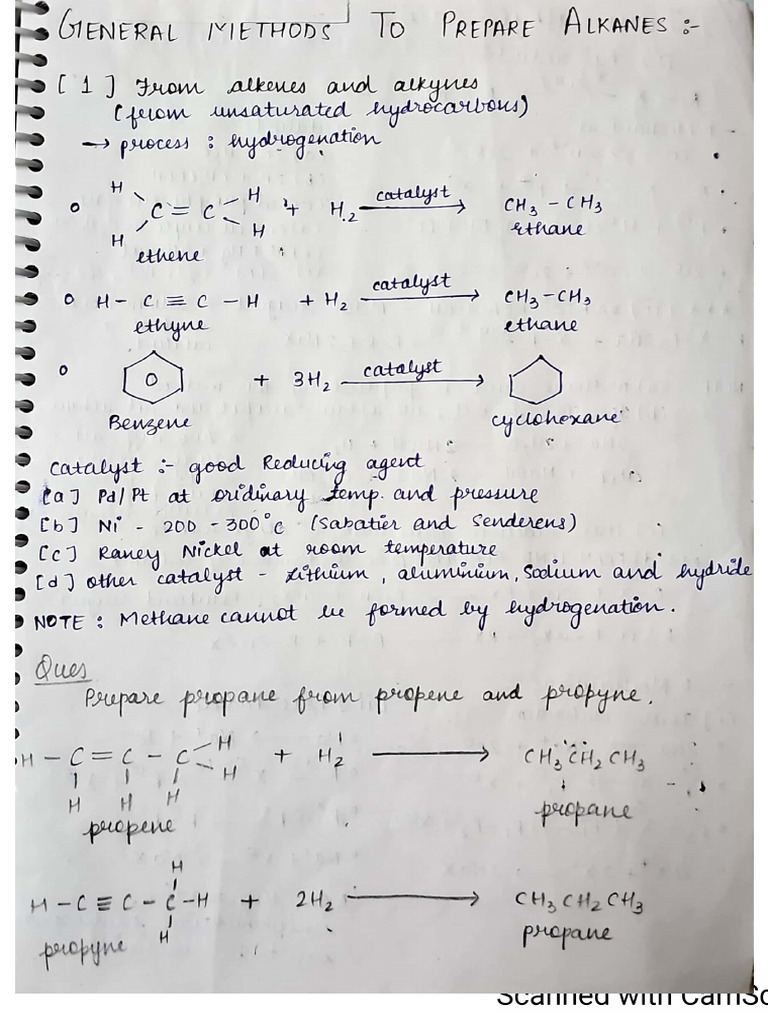 GENERAL METHODS TO PREPARE ALKANES :-
[1] From alkenes and alkynes
(from unsaturated hydrocarbons)
→ process : hydrogenation
H H
C = C + H2 catalyst → CH3 - CH3
H H ethane
ethene
H - C ≡ C - H + H2 catalyst → CH3-CH3
ethyne ethane
+ 3H2 catalyst →
Benzene cyclohexane
catalyst :- good Reducing agent
[a] Pd/Pt at oridinary temp. and pressure
[b] Ni - 200 - 300°c (Sabatier and Senderens)
[c] Raney Nickel at room temperature
[d] other catalyst - Lithium, aluminium, Sodium and hydride
NOTE : Methane cannot be formed by hydrogenation.
Ques
Prepare propane from propene and propyne.
H
H - C = C - C + H2 → CH3 CH2 CH3
H
H H H
propene propane
H
H - C ≡ C - C - H + 2H2 → CH3 CH2 CH3
H
propyne propane
Scanned with CamSc